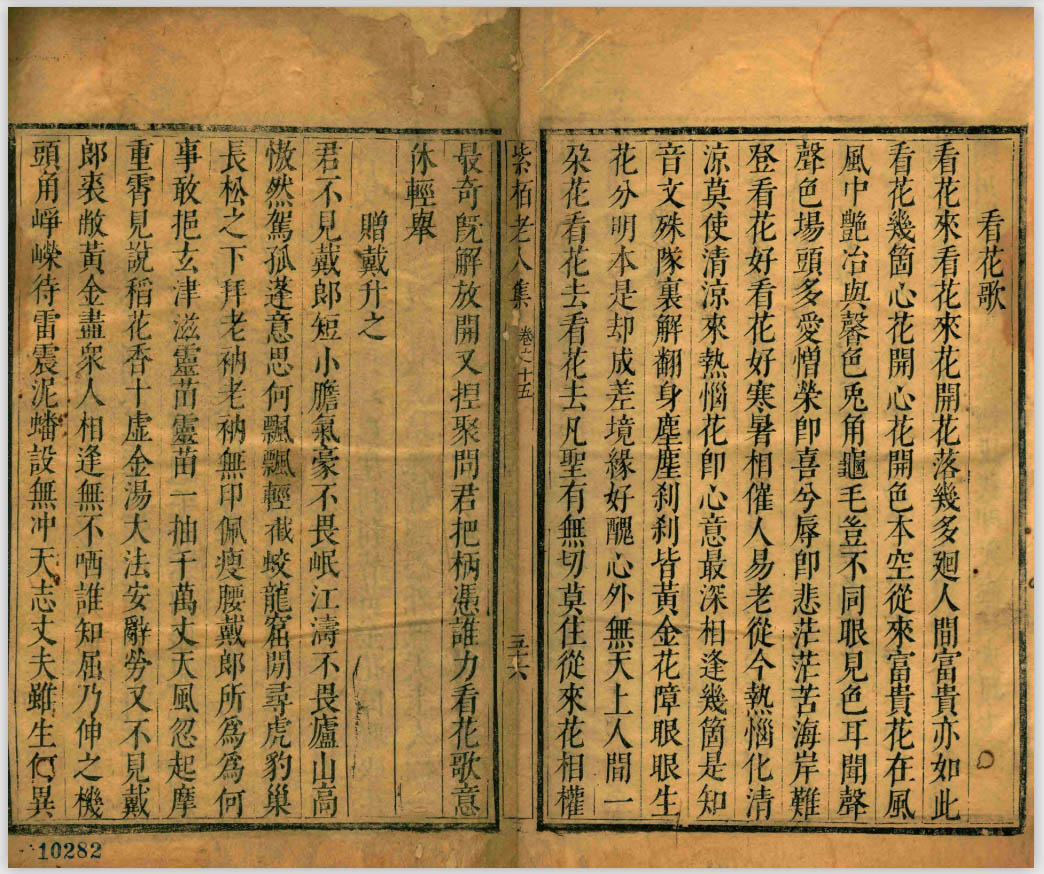 看花歌
看花來看花來花開花落幾多廻人間富貴亦如此
看花幾箇心花開心花開色本空從來富貴花在風
風中艷冶與馨色兎角龜毛豈不同眼見色耳聞聲
聲色場頭多愛憎榮即喜兮辱即悲茫茫苦海岸難
登看花好看花好寒暑相催人易老從今熱惱化清
涼莫使清涼來熱惱花即心意最深相逢幾箇是知
音文殊隊裏解翻身塵塵刹刹皆黃金花障眼眼生
花分明本是却成差境緣好醜心外無天上人間一
朶花看花去看花去凡聖有無切莫住從來花相權
紫栢老人集
卷之十五
五十六
最奇旣解放開又捏聚問君把柄憑誰力看花歌意
休輕舉
贈戴升之
君不見戴郎短小膽氣豪不畏岷江濤不畏廬山高
慠然駕孤蓬意思何飄飄輕截蛟龍窟閒尋虎豹巢
長松之下拜老衲老衲無印佩瘦腰戴郎所爲爲何
事敢挹玄津滋靈苗靈苗一抽千萬丈天風忽起摩
重霄見說稻花香十虛金湯大法安辭勞又不見戴
郎裘敝黃金盡衆人相逢無不哂誰知屈乃伸之機
頭角崢嶸待雷震泥蟠設無冲天志丈夫雖生何異
10282